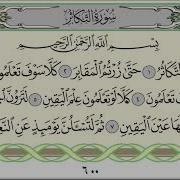 سُورَةُ التَّكَاثُرِ
بِسْمِ اللَّهِ الرَّحْمَٰنِ الرَّحِيمِ
التَّكَاثُرُ ١ حَتَّىٰ زُرْتُمُ الْمَقَابِرَ ٢ كَلَّا سَوْفَ تَعْلَمُو
تَعْلَمُونَ ٤ كَلَّا لَوْ تَعْلَمُونَ عِلْمَ الْيَقِينِ ٥ لَتَرَوُنَّ
هَا عَيْنَ الْيَقِينِ ٧ ثُمَّ لَتُسْـَٔلُنَّ يَوْمَئِذٍ عَنِ النَّعِ
٦٠٠